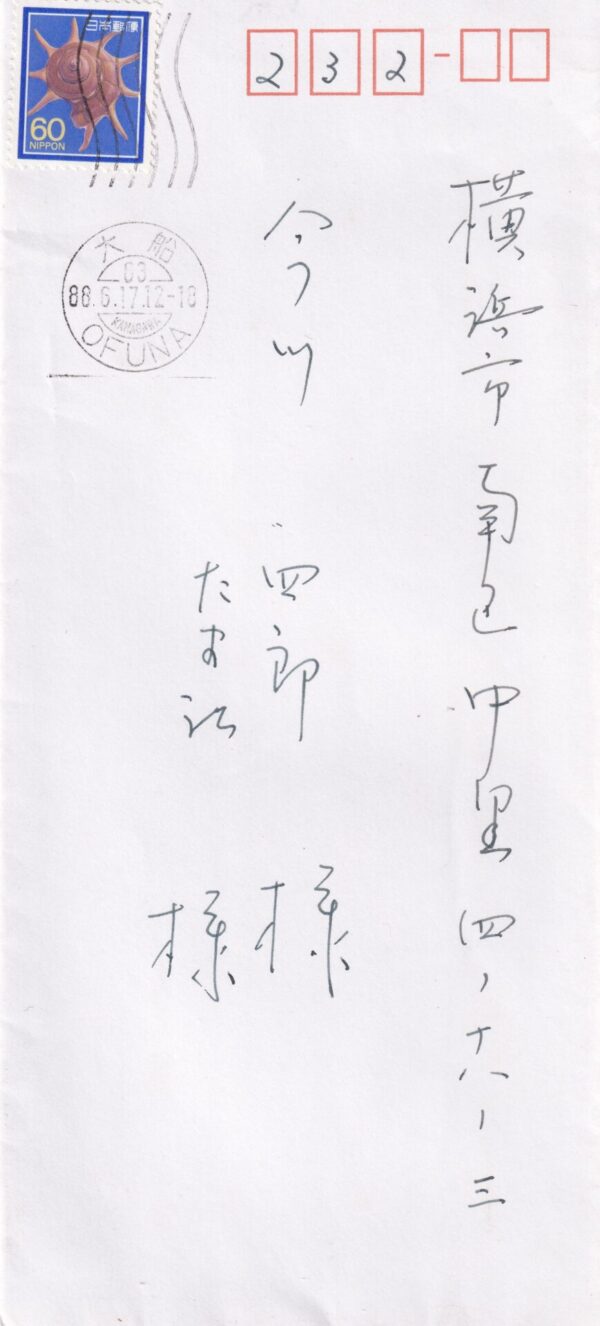 日本郵便
60
NIPPON
232
大船
88.6.17.12-18
KANAGAWA
OFUNA
横浜市南区中里四-十八-三
今川 四郎 様
たま江 様